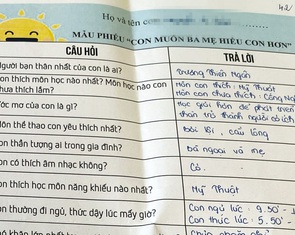 42/
Họ và tên con
MẪU PHIẾU "CON MUỐN BA MẸ HIỂU CON HƠN"
CÂU HỎI
TRẢ LỜI
gười bạn thân nhất của con là ai?
Trương Thiên Ngân
on thích môn học nào nhất? Môn học nào con
hưa thích lắm?
Môn con thích: Mỹ Thuật
Môn con chưa thích: Công Ng
ớc mơ của con là gì?
Học giỏi hơn để phát triển
thân trở thành người có ích
ôn thể thao con yêu thích nhất?
Bơi lội, cầu lông
on thần tượng ai trong gia đình?
Bà ngoại và mẹ
on có thích âm nhạc không?
Có.
on thích học môn năng khiếu nào nhất?
Mỹ Thuật
on thường đi ngủ, thức dậy lúc mấy giờ?
Con ngủ lúc: 9.50'
Con thức lúc: 5.50'